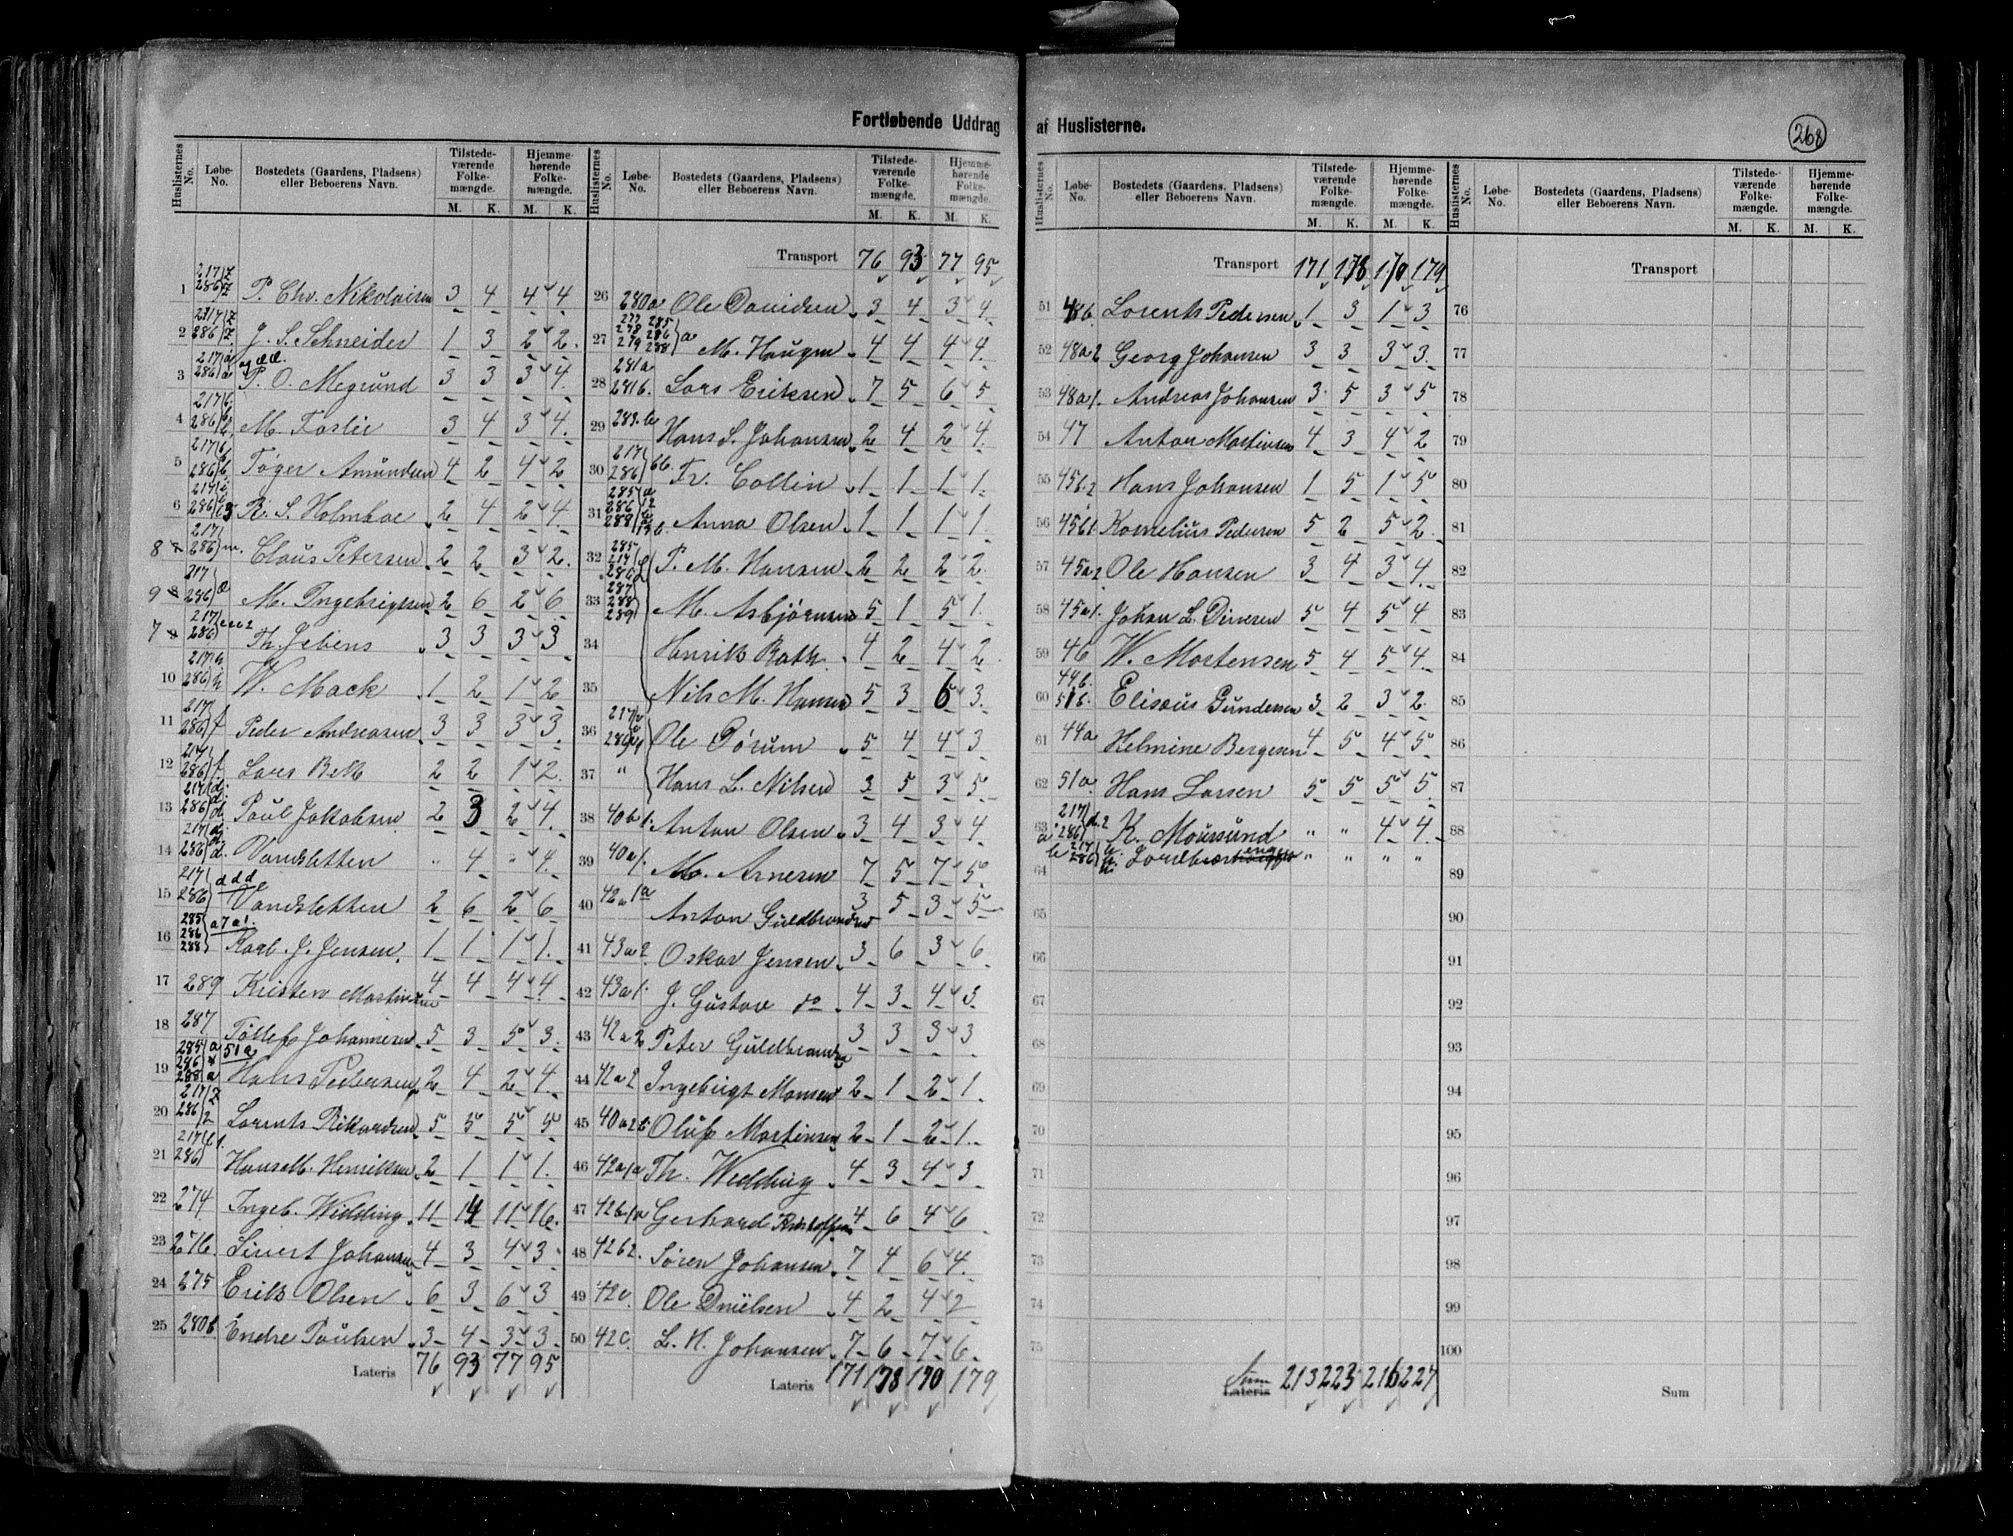 Fortløbende Uddrag af Huslisterne.
268
Huslisternes No. Løbe-No. Bostedets (Gaardens, Pladsens) eller Beboerens Navn. Tilstedeværende Folkemængde. M. K. Hjemmehørende Folkemængde. M. K.
1 217/z 286/z P. Chr. Nikolaisen 3 4 4 4
2 217/z 286/z J. S. Schneider 1 3 2 2
3 217/a 286/a og æ.æ. P. O. Megrund 3 3 3 4
4 217/b 286/b M. Forlie 3 4 3 4
5 217/b 286/b Tøger Amundsen 4 2 4 2
6 217/i 286/i R. S. Holmboe 2 4 2 4
8 217 286/m Claus Petersen 2 2 3 2
9 217 286/a M. Ingebrigtsen 2 6 2 6
7 217 286 Th. Jebens 3 3 3 3
10 217/h 286/h W. Mack 1 2 1 2
11 217 286/f Peder Andreasen 3 3 3 3
12 217 286/f Lars Beck 2 2 1 2
13 217/d 286/d Poul Jakobsen 2 3 2 4
14 217/d 286/d Vandsletten " 4 " 4
15 217 286 d d d Vandsletten 2 6 2 6
16 285 286 288 a 7 a 1 Karl J. Jensen 1 1 1 1
17 289 Kristen Martinsen 4 4 4 4
18 287 Tollef Johannesen 5 3 5 3
19 285/a 51a 286 288/a Hans Pedersen 2 4 2 4
20 217/z 286/z Lorents Rikardsen 5 5 5 5
21 217/l 1 286 Hans M. Henriksen 2 1 1 1
22 274 Ingeb. Widding 11 14 11 16
23 276 Sivert Johansen 4 3 4 3
24 275 Erik Olsen 6 3 6 3
25 280b Endre Poulsen 3 4 3 3
Lateris 76 93 77 95
Huslisternes No. Løbe-No. Bostedets (Gaardens, Pladsens) eller Beboerens Navn. Tilstedeværende Folkemængde. M. K. Hjemmehørende Folkemængde. M. K.
Transport 76 93 77 95
26 280a Ole Davidsen 3 4 3 4
27 277 285 278 286 279 288 a M. Haugen 4 4 4 4
28 281a 281b Lars Eriksen 7 5 6 5
29 283 Hans S. Johansen 2 4 2 4
30 217 286 bb Fr. Collin 1 1 1 1
31 285/a 286 288 Anna Olsen 1 1 1 1
32 285 214 286 P. M. Hansen 2 2 2 2
33 287 288 289 M. Asbjørnsen 5 1 5 1
34 Henrik Rath 4 2 4 2
35 Nils M. Hansen 5 3 6 3
36 217 286 Ole Tørum 5 4 4 3
37 " Hans L. Nilsen 3 5 3 5
38 40b1 Anton Olsen 3 4 3 4
39 40a1 M. Arnesen 7 5 7 5
40 42a1a Anton Guldbrandsen 3 5 3 5
41 43a2 Oskar Jensen 3 6 3 6
42 43a1 J. Gustav do 4 3 4 3
43 42a2 Peter Guldbrandsen 3 3 3 3
44 42a2 Ingebrigt Monsen 2 1 2 1
45 40a2 Oluf Martinsen 2 1 2 1
46 42a1a Th. Widding 4 3 4 3
47 42b1a Gerhard Kristoffersen 4 6 4 6
48 42b2 Søren Johansen 7 4 6 4
49 42c Ole Emilsen 4 2 4 2
50 42c L. H. Johansen 7 6 7 6
Lateris 171 178 170 179
Huslisternes No. Løbe-No. Bostedets (Gaardens, Pladsens) eller Beboerens Navn. Tilstedeværende Folkemængde. M. K. Hjemmehørende Folkemængde. M. K.
Transport 171 178 170 179
51 48b Lorents Pedersen 1 3 1 3
52 48a2 Georg Johansen 3 3 3 3
53 48a1 Andreas Johansen 3 5 3 5
54 47 Anton Martinsen 4 3 4 2
55 45b2 Hans Johansen 1 5 1 5
56 45b1 Kornelius Pedersen 5 2 5 2
57 45a2 Ole Hansen 3 4 3 4
58 45a1 Johan L. Dinesen 5 4 5 4
59 46 W. Mortensen 5 4 5 4
60 44b 51b Elisæus Gundersen 3 2 3 2
61 44a Helmine Bergesen 4 5 4 5
62 51a Hans Larsen 5 5 5 5
63 a 217 286 d.2 K. Moursund " " 4 4
64 b 217 286 " " " "
65
66
67
68
69
70
71
72
73
74
75
Sum Lateris 213 223 216 227
Huslisternes No. Løbe-No. Bostedets (Gaardens, Pladsens) eller Beboerens Navn. Tilstedeværende Folkemængde. M. K. Hjemmehørende Folkemængde. M. K.
Transport
76
77
78
79
80
81
82
83
84
85
86
87
88
89
90
91
92
93
94
95
96
97
98
99
100
Sum